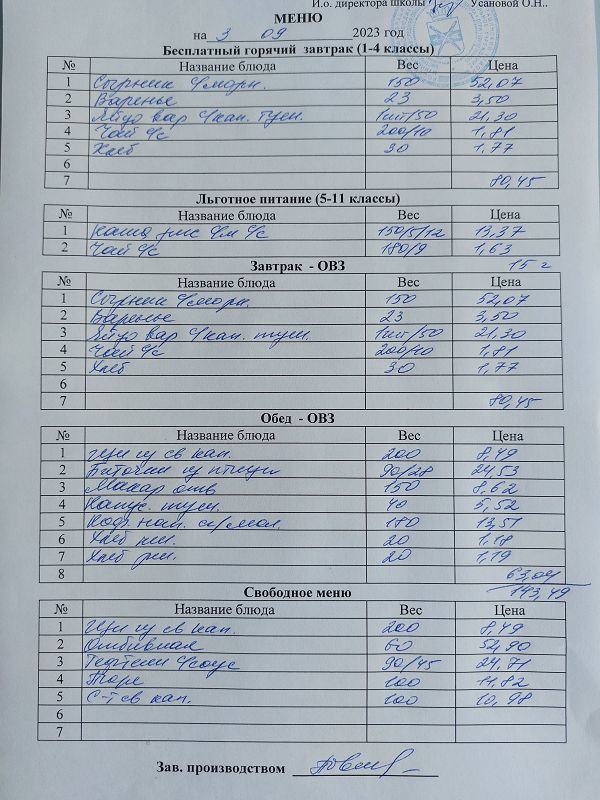 И.о. директора школы Усановой О.Н..
МЕНЮ
на 3 09 2023 год
Бесплатный горячий завтрак (1-4 классы)
№ Название блюда Вес Цена
1 Сырник 150 52,07
2 Варенье 23 3,50
3 Яйцо вар с/кап. туш. 1шт/50 21,30
4 Чай с/с 200/10 1,81
5 Хлеб 30 1,77
6
7 80,45
Льготное питание (5-11 классы)
№ Название блюда Вес Цена
1 Каша рис 150/5/12 13,37
2 Чай с/с 180/9 1,63
15
Завтрак - ОВЗ
№ Название блюда Вес Цена
1 Сырник 150 52,07
2 Варенье 23 3,50
3 Яйцо вар с/кап. туш. 1шт/50 21,30
4 Чай с/с 200/10 1,81
5 Хлеб 30 1,77
6
7 80,45
Обед - ОВЗ
№ Название блюда Вес Цена
1 Щи из св кап. 200 8,49
2 Биточки из птицы 90/28 24,53
3 Макар отв 150 8,62
4 Капус. туш. 40 5,52
5 Коф. нап. с/мол. 180 13,51
6 Хлеб пш. 20 1,18
7 Хлеб рж. 20 1,19
8 63,04
143,49
Свободное меню
№ Название блюда Вес Цена
1 Щи из св кап. 200 8,49
2 Отбивная 60 52,90
3 Тефтели с/соус 90/45 24,71
4 Пюре 100 11,82
5 С-т св кап. 100 10,98
6
7
Зав. производством